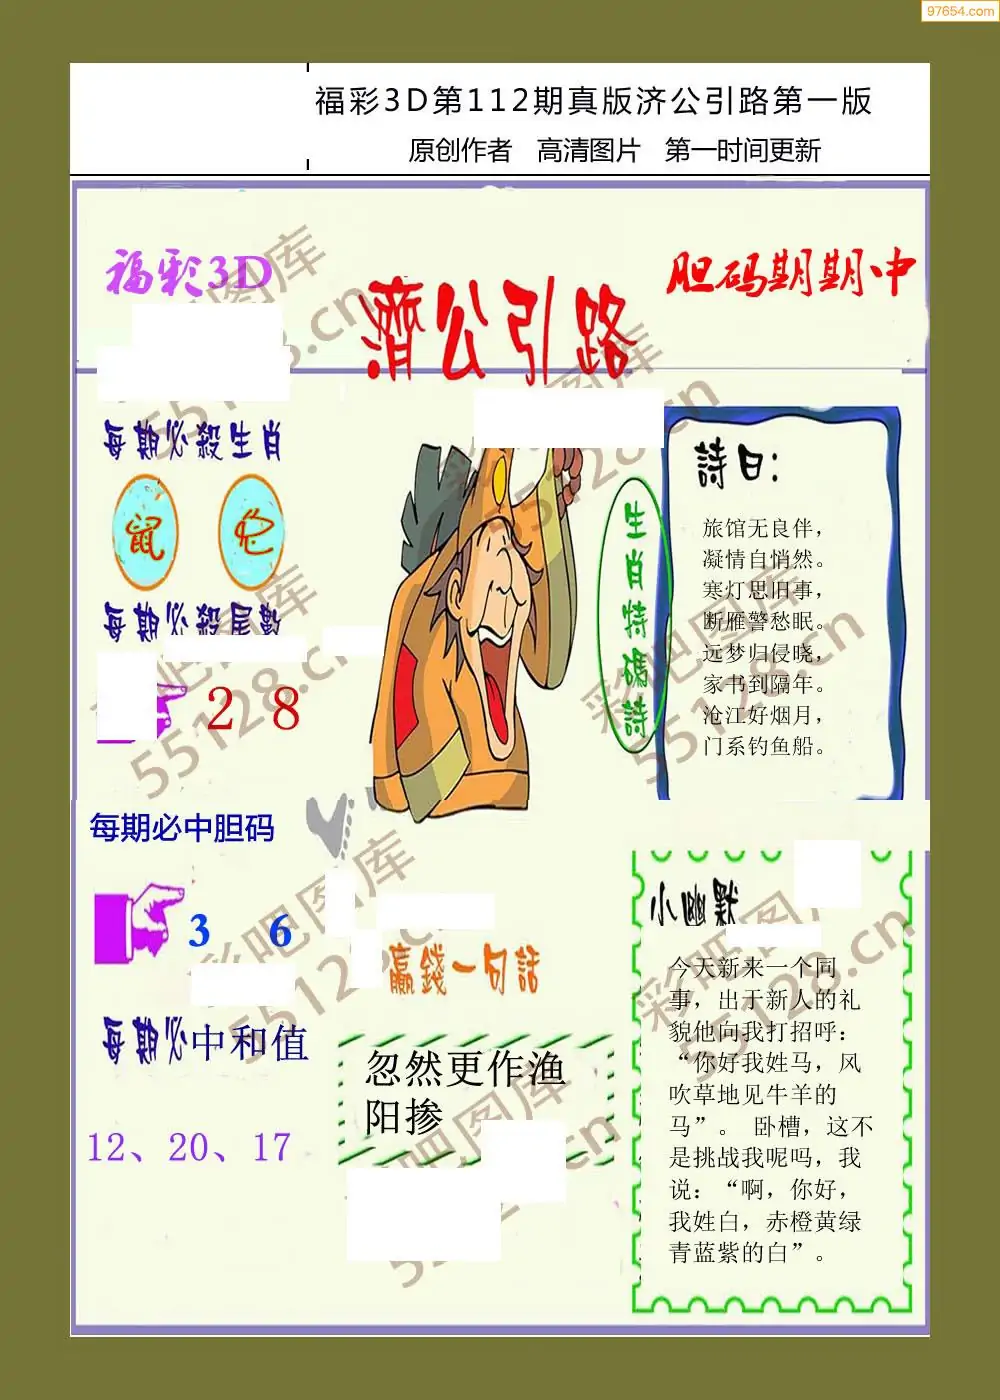 97654.com
福彩3D第112期真版济公引路第一版
原创作者 高清图片 第一时间更新
福彩3D
濟公引路
胆码期期中
每期必殺生肖
鼠 蛇
每期必殺尾數
2 8
生肖特碼詩
詩曰:
旅馆无良伴，
凝情自悄然。
寒灯思旧事，
断雁警愁眠。
远梦归侵晓，
家书到隔年。
沧江好烟月，
门系钓鱼船。
每期必中胆码
3 6
每期必中和值
12、20、17
贏錢一句話
忽然更作渔
阳掺
小幽默
今天新来一个同
事，出于新人的礼
貌他向我打招呼：
“你好我姓马，风
吹草地见牛羊的
马”。 卧槽，这不
是挑战我呢吗，我
说：“啊，你好，
我姓白，赤橙黄绿
青蓝紫的白”。
彩吧图库
55128.cn